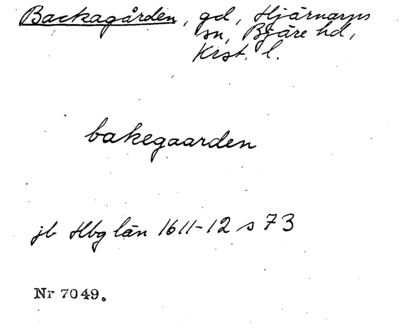 Backagården, gd, Hjärnarps
sn, Bjäre hd,
Krist. l.
bakegaarden
jb Hbg län 1611-12 s 73
Nr 7049.